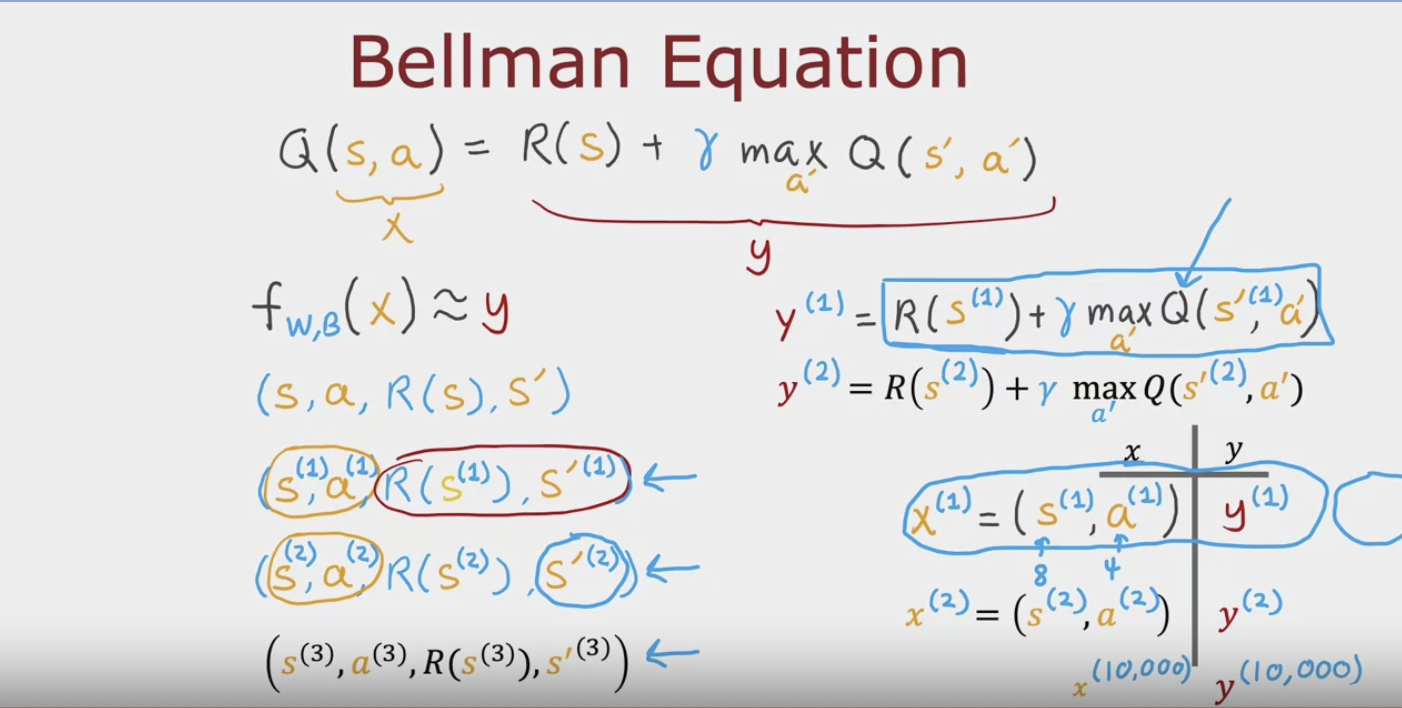 Bellman Equation
Q(s, a) = R(s) + γ max Q(s′, a′)
a′
x
y
f_{W,B}(x) ≈ y
(s, a, R(s), s′)
(s^{(1)}, a^{(1)}, R(s^{(1)}), s′^{(1)}) ←
(s^{(2)}, a^{(2)}, R(s^{(2)}), s′^{(2)}) ←
(s^{(3)}, a^{(3)}, R(s^{(3)}), s′^{(3)}) ←
y^{(1)} = R(s^{(1)}) + γ max Q(s′^{(1)}, a′)
a′
y^{(2)} = R(s^{(2)}) + γ max Q(s′^{(2)}, a′)
a′
x y
x^{(1)} = (s^{(1)}, a^{(1)}) y^{(1)}
↑ ↑
8 4
x^{(2)} = (s^{(2)}, a^{(2)}) y^{(2)}
x^{(10,000)} y^{(10,000)}